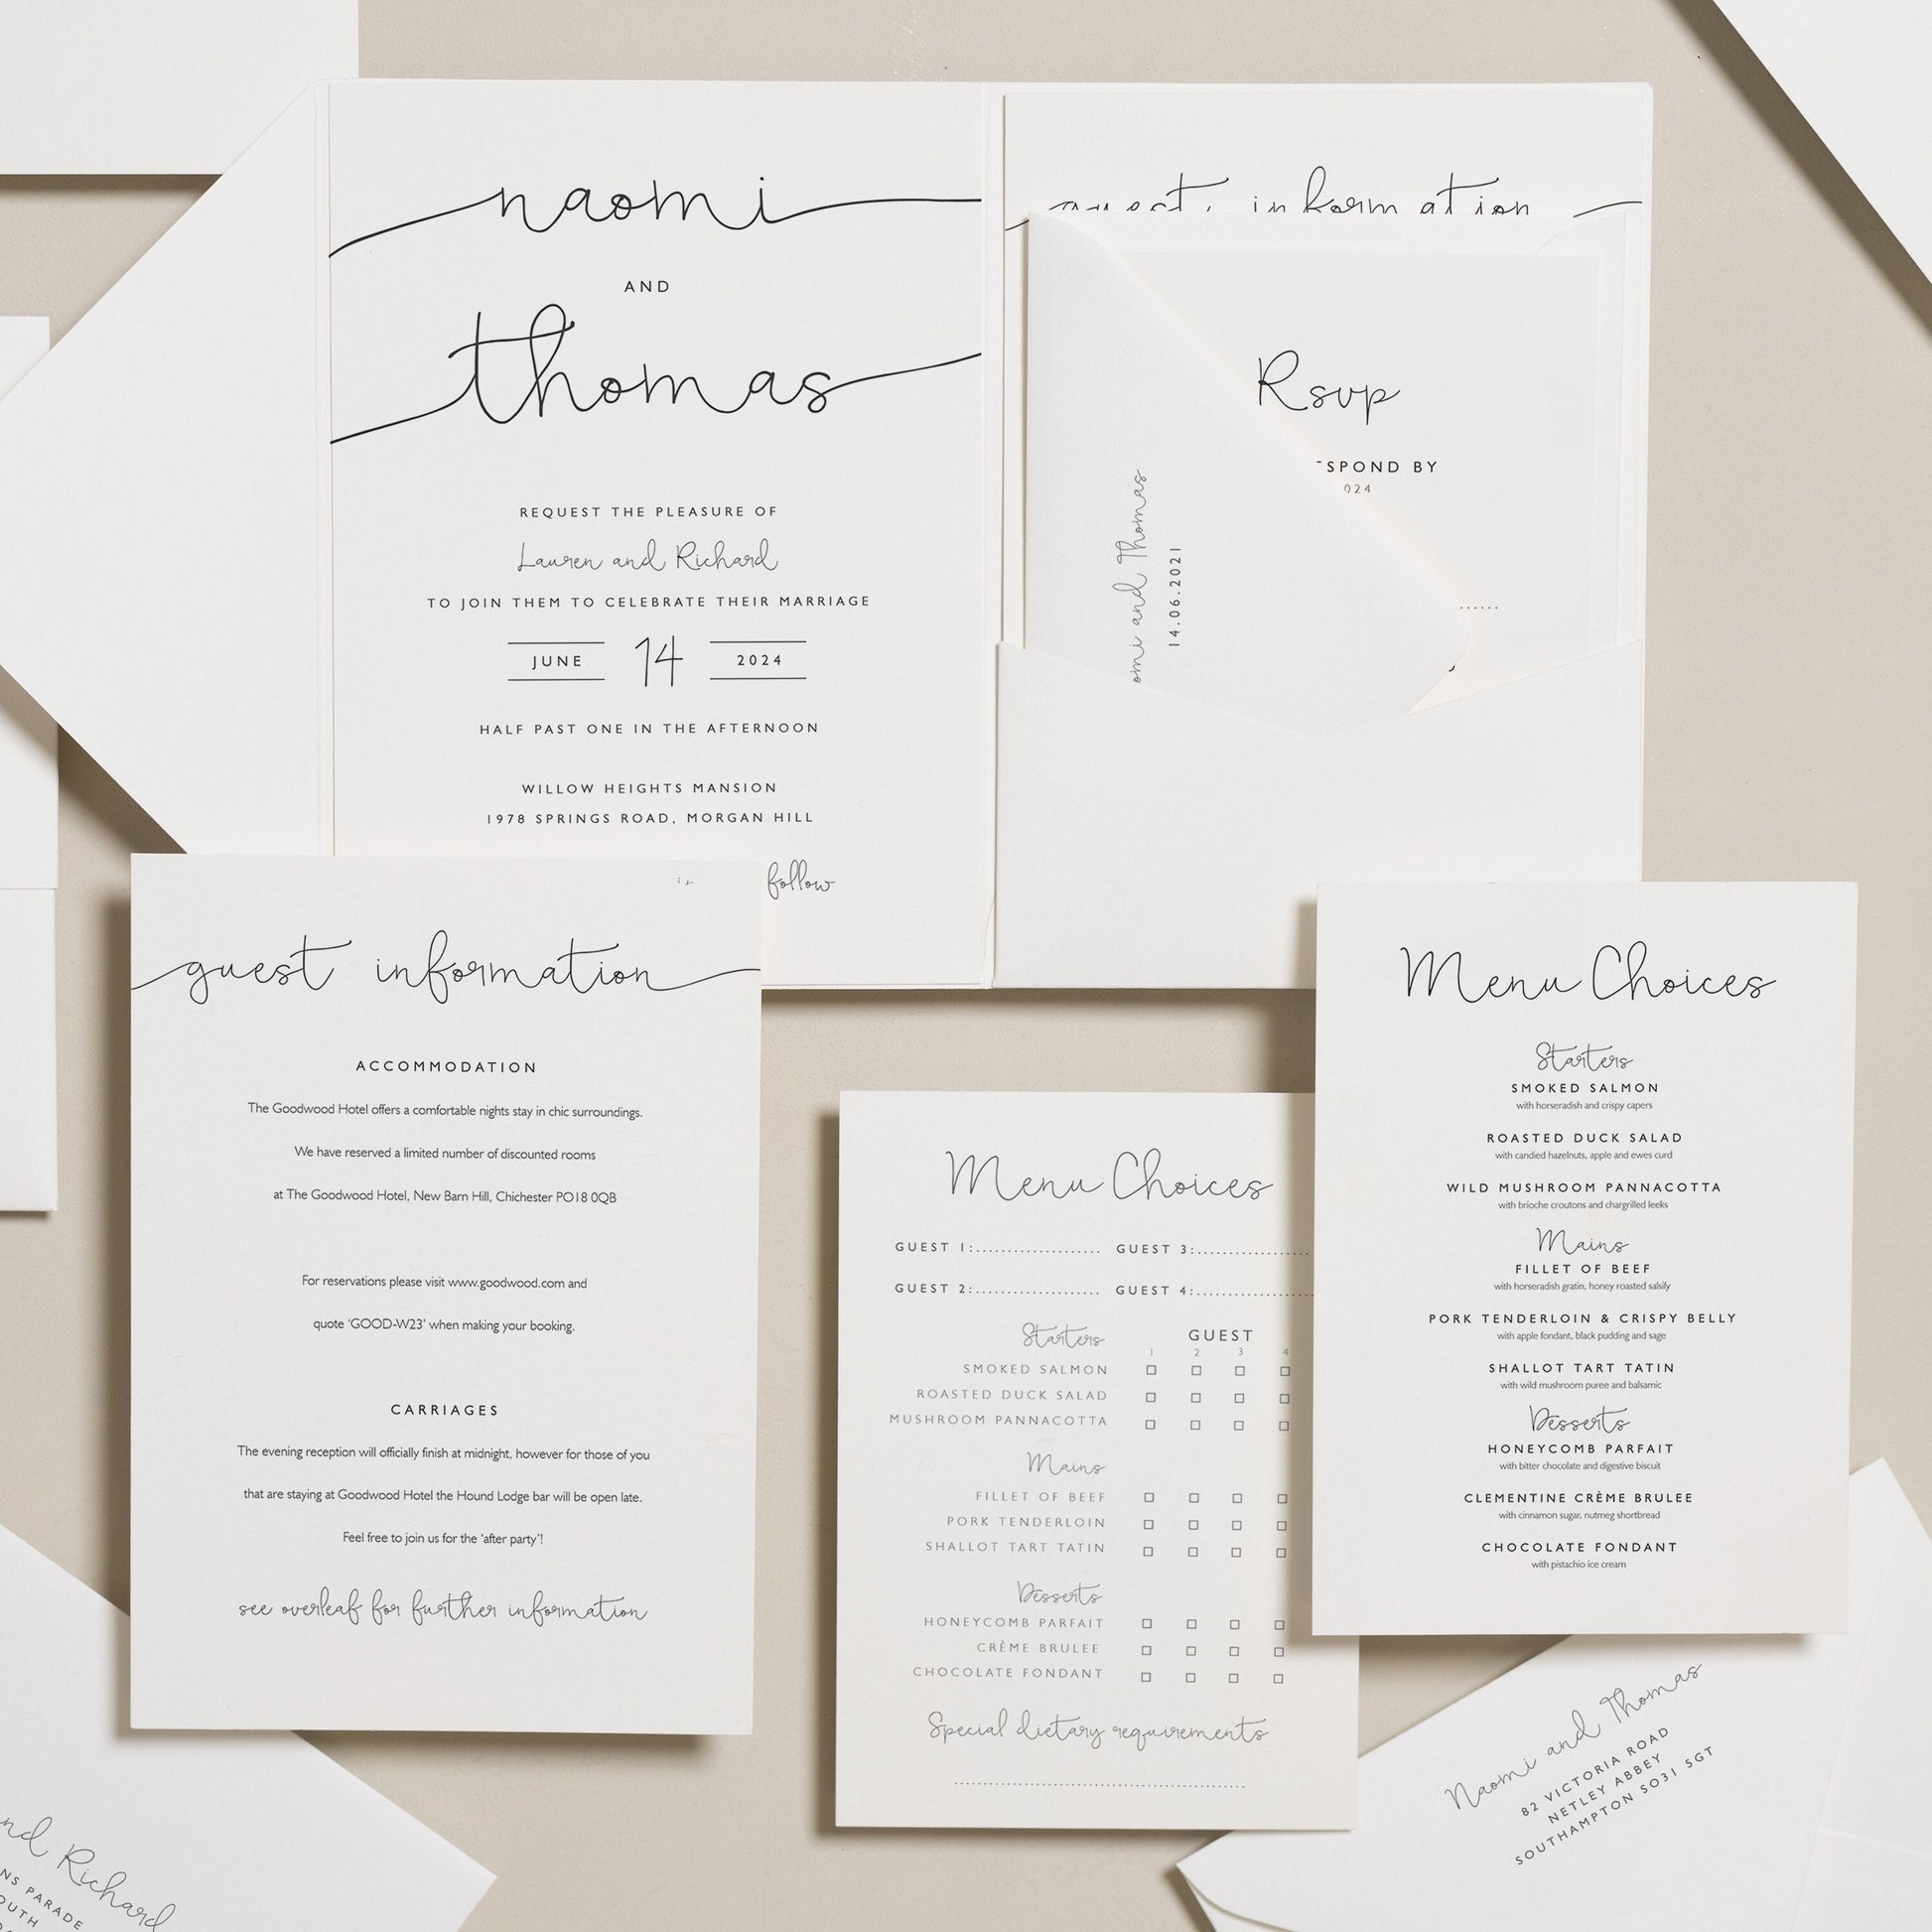 naomi
AND
thomas
REQUEST THE PLEASURE OF
Lauren and Richard
TO JOIN THEM TO CELEBRATE THEIR MARRIAGE
JUNE 14 2024
HALF PAST ONE IN THE AFTERNOON
WILLOW HEIGHTS MANSION
1978 SPRINGS ROAD, MORGAN HILL
follow
guest information
Rsvp
BY
and Thomas
14.06.2021
guest information
ACCOMMODATION
The Goodwood Hotel offers a comfortable nights stay in chic surroundings.
We have reserved a limited number of discounted rooms
at The Goodwood Hotel, New Barn Hill, Chichester PO18 0QB
For reservations please visit www.goodwood.com and
quote ‘GOOD-W23’ when making your booking.
CARRIAGES
The evening reception will officially finish at midnight, however for those of you
that are staying at Goodwood Hotel the Hound Lodge bar will be open late.
Feel free to join us for the ‘after party’!
see overleaf for further information
Menu Choices
GUEST 1:.................... GUEST 3:....................
GUEST 2:.................... GUEST 4:....................
Starters GUEST
1 2 3 4
SMOKED SALMON
ROASTED DUCK SALAD
MUSHROOM PANNACOTTA
Mains
FILLET OF BEEF
PORK TENDERLOIN
SHALLOT TART TATIN
Desserts
HONEYCOMB PARFAIT
CRÈME BRULEE
CHOCOLATE FONDANT
Special dietary requirements
Menu Choices
Starters
SMOKED SALMON
with horseradish and crispy capers
ROASTED DUCK SALAD
with candied hazelnuts, apple and ewes curd
WILD MUSHROOM PANNACOTTA
with brioche croutons and chargrilled leeks
Mains
FILLET OF BEEF
with horseradish gratin, honey roasted salsify
PORK TENDERLOIN & CRISPY BELLY
with apple fondant, black pudding and sage
SHALLOT TART TATIN
with wild mushroom puree and balsamic
Desserts
HONEYCOMB PARFAIT
with bitter chocolate and digestive biscuit
CLEMENTINE CRÈME BRULEE
with cinnamon sugar, nutmeg shortbread
CHOCOLATE FONDANT
with pistachio ice cream
Naomi and Thomas
82 VICTORIA ROAD
NETLEY ABBEY
SOUTHAMPTON SO31 5GT
Richard
PARADE